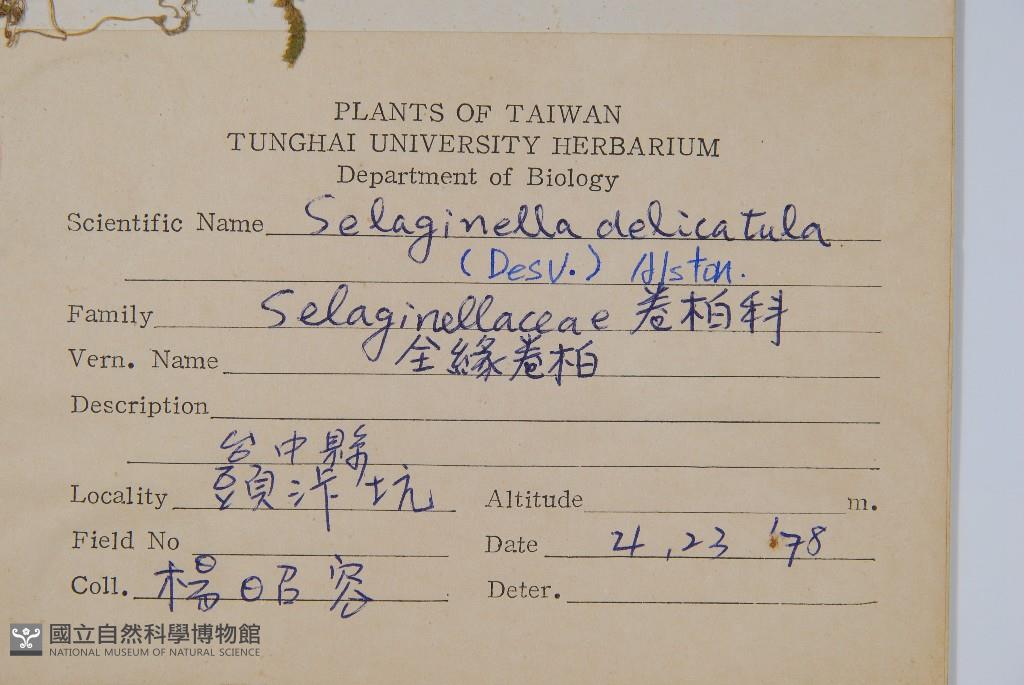 PLANTS OF TAIWAN
TUNGHAI UNIVERSITY HERBARIUM
Department of Biology
Scientific Name Selaginella delicatula
(Desv.) Alston.
Family Selaginellaceae 卷柏科
Vern. Name 全緣卷柏
Description
台中縣
Locality 頭汴坑 Altitude m.
Field No Date 4,23 '78
Coll. 楊昭容 Deter.
國立自然科學博物館
NATIONAL MUSEUM OF NATURAL SCIENCE